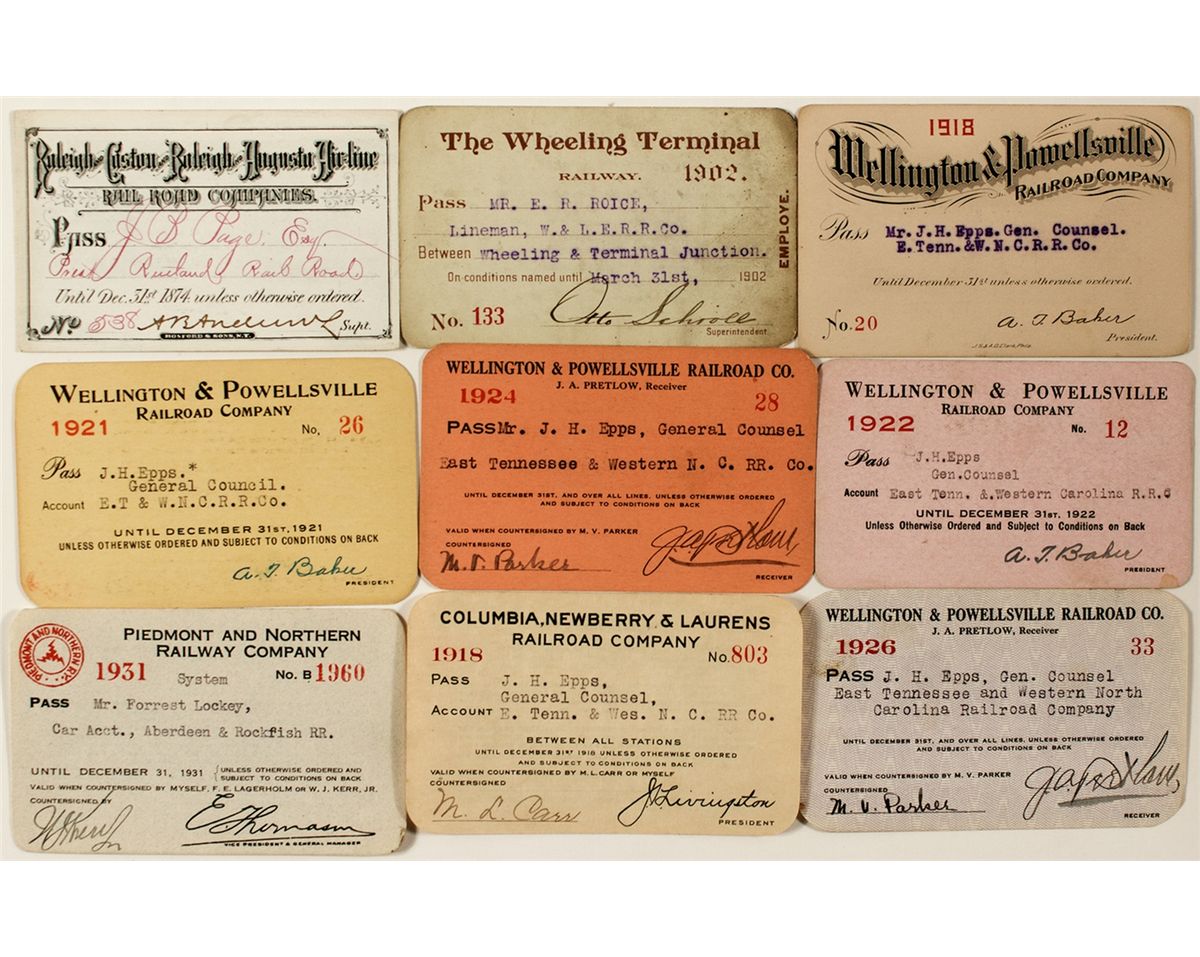 Raleigh and Gaston and Raleigh and Augusta Air-line
RAIL ROAD COMPANIES.
PASS J B Page Esq.
Prest Rutland Rail Road
Until Dec. 31st 1874 unless otherwise ordered.
No 538 Supt.
HOSFORD & SONS, N.Y.
The Wheeling Terminal
RAILWAY. 1902.
Pass MR. E. R. ROICE,
Lineman, W.& L.E.R.R.Co.
Between Wheeling & Terminal Junction.
On conditions named until March 31st, 1902
EMPLOYE.
No. 133 Otto Schroll
Superintendent.
1918
Wellington & Powellsville
RAILROAD COMPANY
Pass Mr.J.H.Epps.Gen. Counsel.
E.Tenn.&W.N.C.R.R.Co.
Until December 31st unless otherwise ordered.
No.20 A. T. Baker
President.
WELLINGTON & POWELLSVILLE
RAILROAD COMPANY
1921 No. 26
Pass J.H.Epps.*
General Council.
Account E.T & W.N.C.R.R.Co.
UNTIL DECEMBER 31ST, 1921
UNLESS OTHERWISE ORDERED AND SUBJECT TO CONDITIONS ON BACK
A. T. Baker
PRESIDENT
WELLINGTON & POWELLSVILLE RAILROAD CO.
J. A. PRETLOW, Receiver
1924 28
PASS Mr. J. H. Epps, General Counsel
East Tennessee & Western N. C. RR. Co.
UNTIL DECEMBER 31ST, AND OVER ALL LINES, UNLESS OTHERWISE ORDERED
AND SUBJECT TO CONDITIONS ON BACK
VALID WHEN COUNTERSIGNED BY M. V. PARKER
COUNTERSIGNED
M. V. Parker J. A. Pretlow,
RECEIVER
WELLINGTON & POWELLSVILLE
RAILROAD COMPANY
1922 No. 12
Pass J.H.Epps
Gen.Counsel
Account East Tenn. &.Western Carolina R.R.C
UNTIL DECEMBER 31ST, 1922
Unless Otherwise Ordered and Subject to Conditions on Back
A. T. Baker
PRESIDENT
PIEDMONT AND NORTHERN RY.
PIEDMONT AND NORTHERN
RAILWAY COMPANY
1931 System No. B 1960
PASS Mr. Forrest Lockey,
Car Acct., Aberdeen & Rockfish RR.
UNTIL DECEMBER 31, 1931 { UNLESS OTHERWISE ORDERED AND
SUBJECT TO CONDITIONS ON BACK
VALID WHEN COUNTERSIGNED BY MYSELF, F. E. LAGERHOLM OR W. J. KERR, JR.
COUNTERSIGNED BY
W J Kerr Jr E Thomason
VICE PRESIDENT & GENERAL MANAGER
COLUMBIA, NEWBERRY & LAURENS
RAILROAD COMPANY
1918 No. 803
PASS J. H. Epps,
General Counsel,
Account E. Tenn. & Wes. N. C. RR Co.
BETWEEN ALL STATIONS
UNTIL DECEMBER 31ST 1918 UNLESS OTHERWISE ORDERED
AND SUBJECT TO CONDITIONS ON BACK
VALID WHEN COUNTERSIGNED BY M.L. CARR OR MYSELF
COUNTERSIGNED
M. L. Carr J Livingston
PRESIDENT
WELLINGTON & POWELLSVILLE RAILROAD CO.
J. A. PRETLOW, Receiver
1926 33
PASS J. H. Epps, Gen. Counsel
East Tennessee and Western North
Carolina Railroad Company
UNTIL DECEMBER 31ST, AND OVER ALL LINES, UNLESS OTHERWISE ORDERED
AND SUBJECT TO CONDITIONS ON BACK
VALID WHEN COUNTERSIGNED BY M. V. PARKER
COUNTERSIGNED
M. V. Parker J. A. Pretlow,
RECEIVER